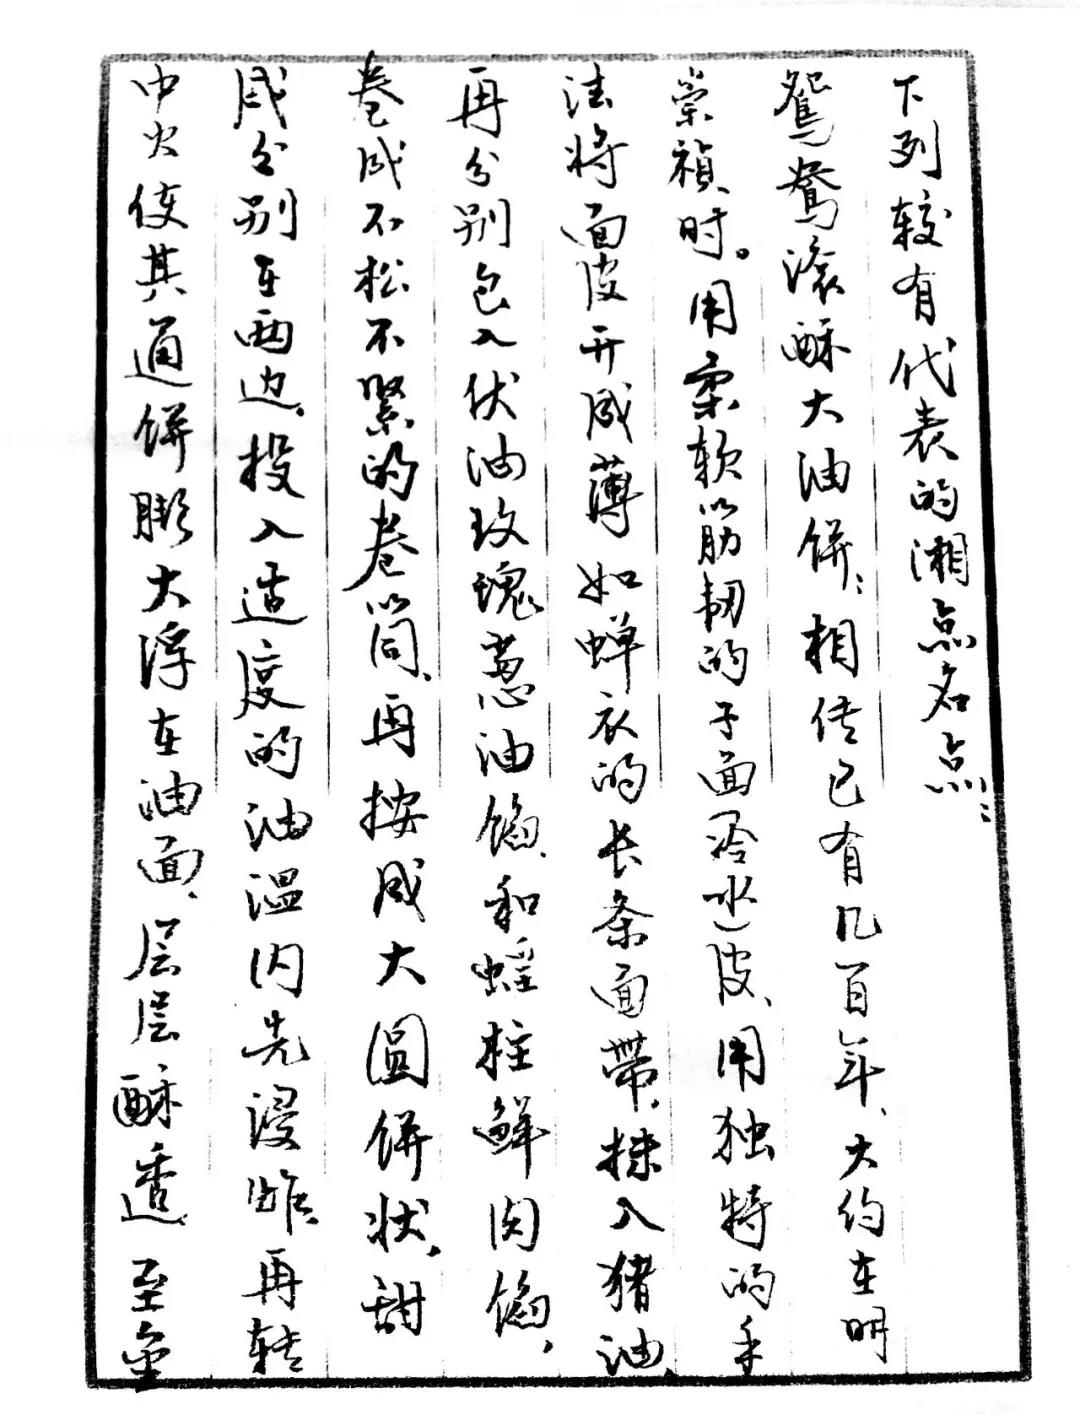 下列较有代表的湘点名点：
鸳鸯滚酥大油饼：相传已有几百年、大约在明
崇祯时。用柔软筋韧的子面(冷水)皮、用独特的手
法将面皮开成薄如蝉衣的长条面带，抹入猪油，
再分别包入伏油玫瑰葱油馅、和蛏柱鲜肉馅，
卷成不松不紧的卷筒、再按成大圆饼状，甜
咸分别至两边，投入适度的油温内先浸，再转
中火使其通饼膨大浮在油面、层层酥透至金